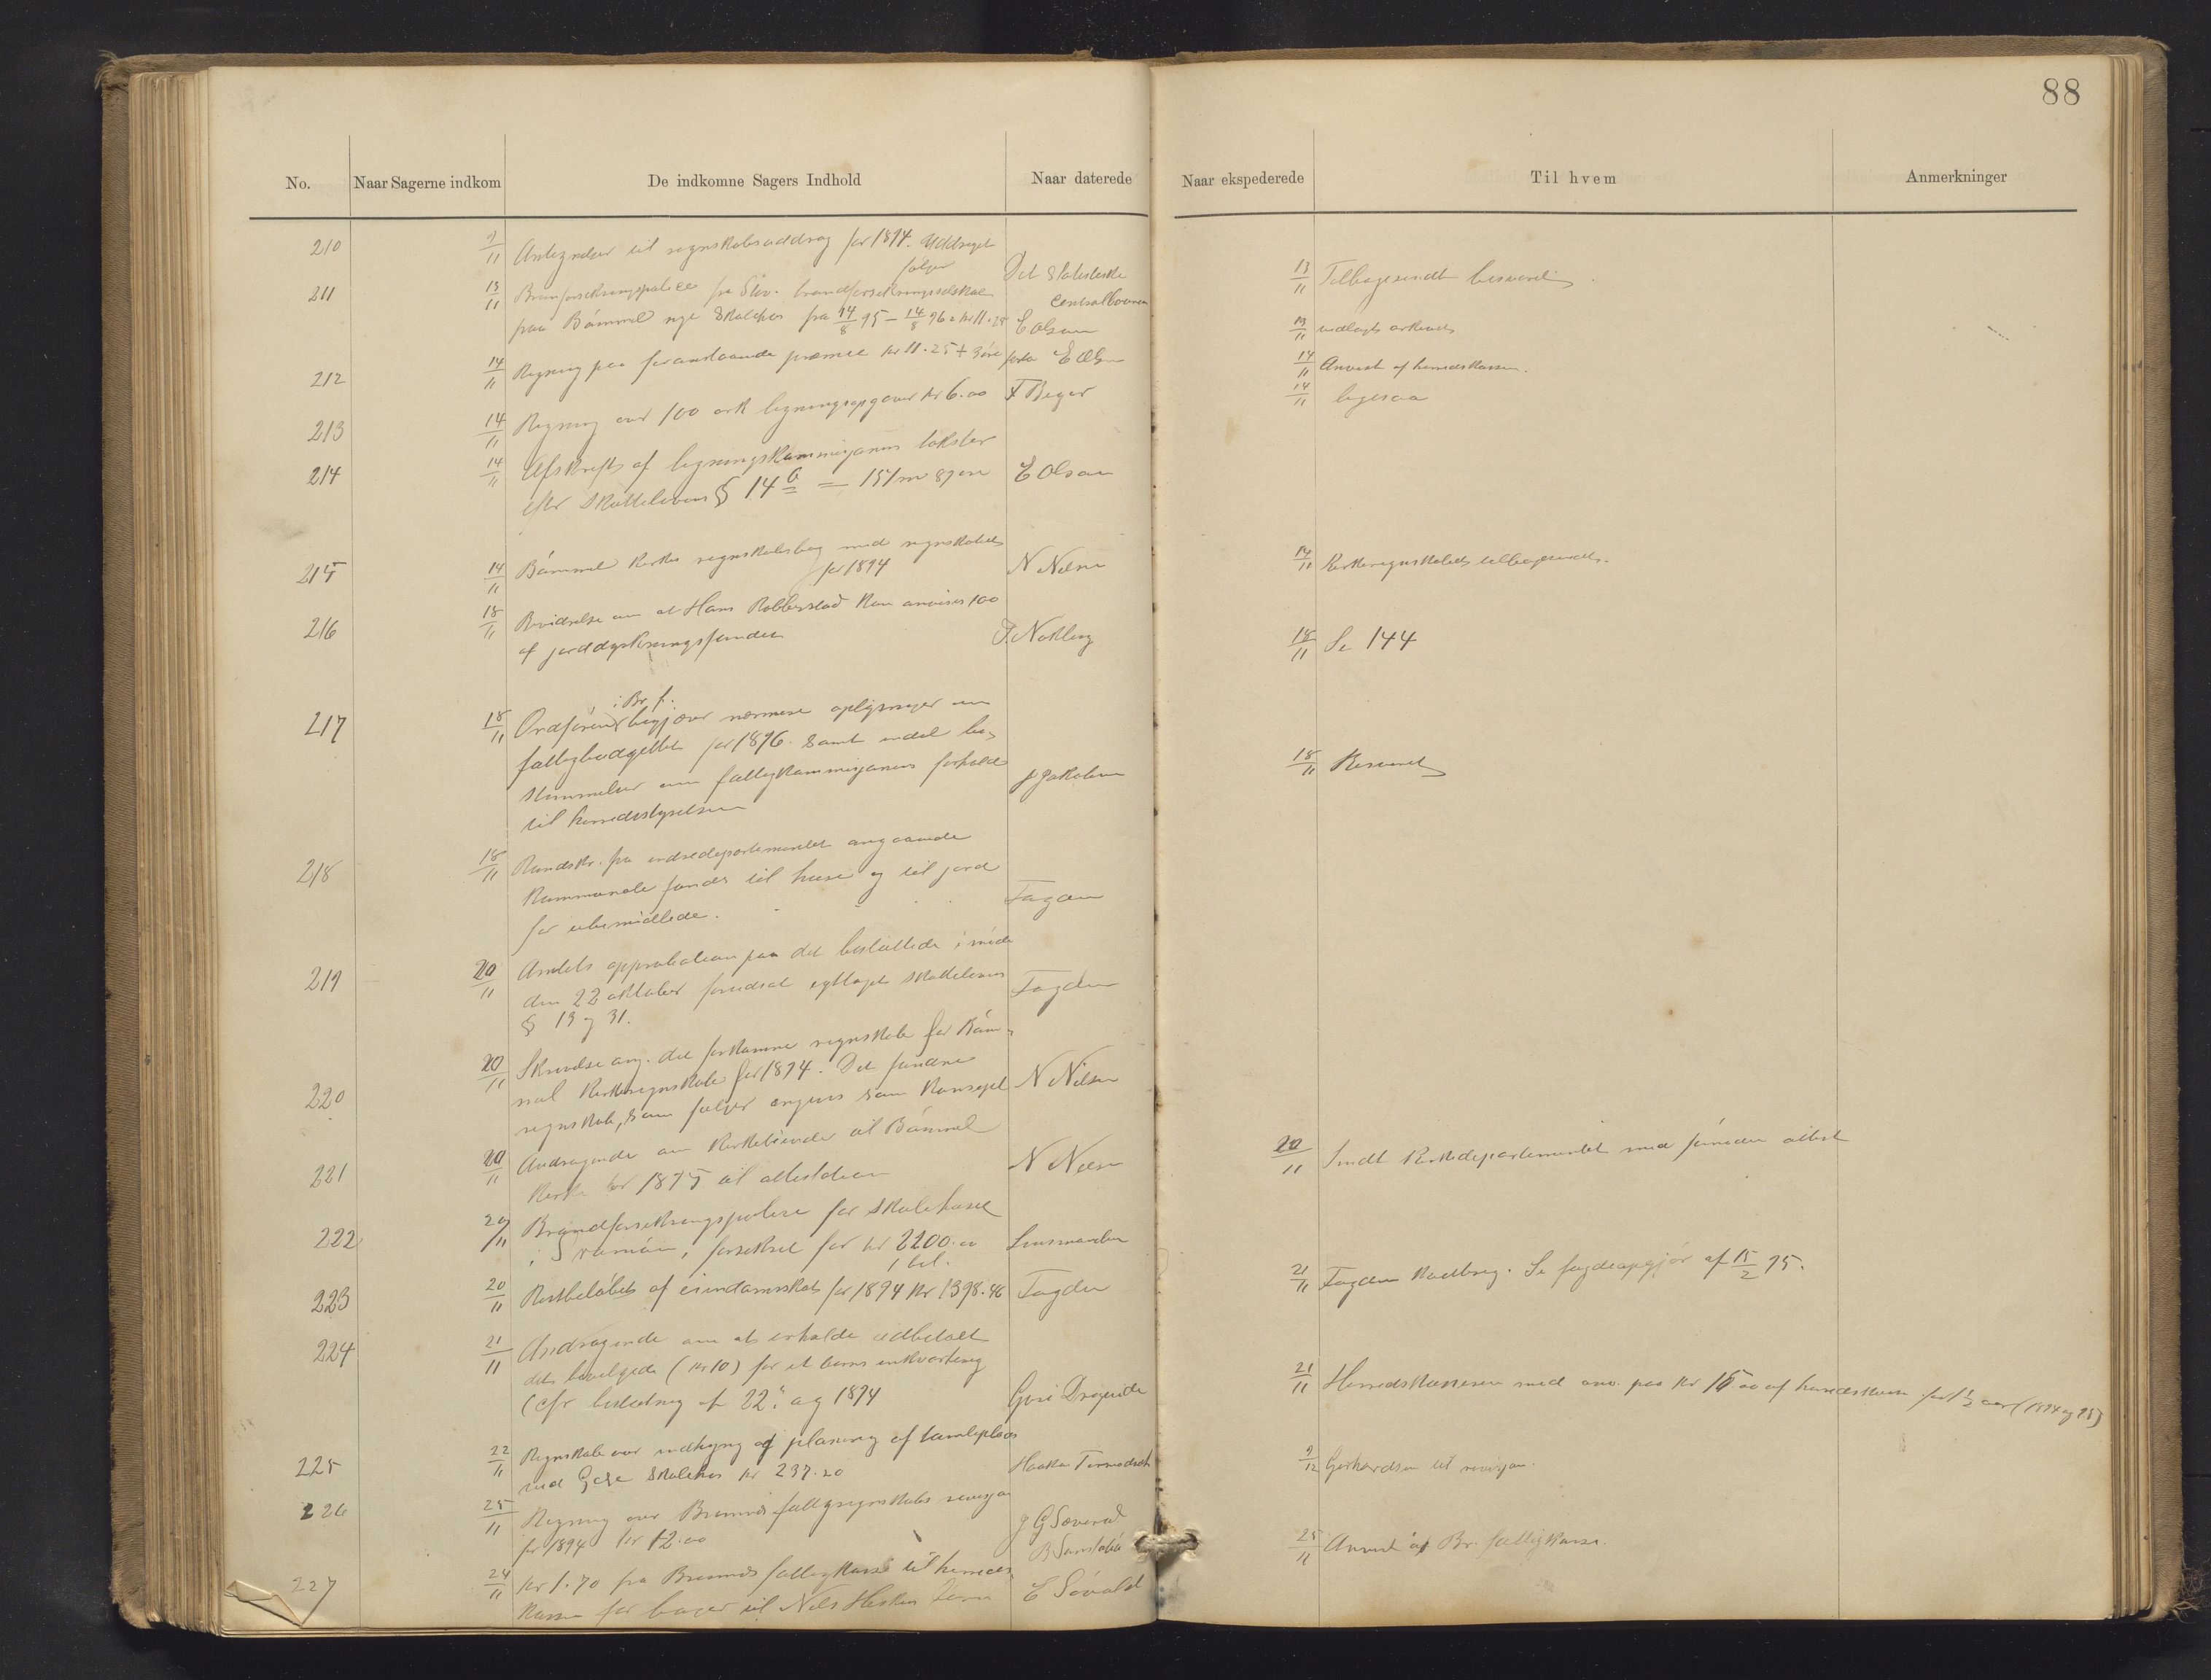 88
No. Naar Sagerne indkom De indkomne Sagers Indhold Naar daterede Naar ekspederede Til hvem Anmerkninger
210 9/11 Antegnelser til regnskabsuddrag for 1894. Uddraget
følger Det statistiske
Centralbureau 13/11 Tilbagesendt besvaret
211 13/11 fra Stav. brandforsikringsselskab
paa Bømmel nye skolehus fra 14/8 95 – 14/8 96 = kr 11.25 E Olsen 13/11 vedlagt arkivet
212 14/11 Regning paa foranstaaende præmie kr 11.25 + 3 øre porto E Olsen 14/11 Anvist af herredskassen.
213 14/11 Regning over 100 ark ligningsopgaver kr 6.00 F Beyer 14/11 ligesaa
214 14/11 Afskrift af ligningskommisjonens takster
efter Skatteloven § 14 b = 151 87 E Olsen
215 14/11 Bømmel kirkes regnskabsbog med regnskabet
for 1894 N Nilsen 14/11 Kirkeregnskabet tilbagesendt.
216 18/11 om at Hans Robberstad kan anvises 100
af jorddyrkningsfondet J. Nekling 18/11 Se 144
217 18/11 Ordføreren i Br. f. begjærer nærmere oplysninger om
fattigbudgettet for 1896. Samt endel be-
stemmelser om fattigkommisjonens forhold
til herredsstyrelsen J Jakobsen 18/11 Besvaret
218 18/11 Rundskr. fra indredepartementet angaaende
kommunale fonds til huse og til jord
for ubemidlede. Fogden
219 20/11 Amtets approbation paa det besluttede i møde
den 22 oktober skatteloven
§ 13 og 31. Fogden
220 20/11 Skrivelse ang. det forkomne regnskab for Bøm-
mel kirkeregnskab for 1894. Det fundne
regnskab, som følger angives som N Nilsen
221 20/11 Andragende om kirketiende til Bømmel
kirke for 1895 til attestation N Nilsen 20/11 Sendt Kirkedepartementet med attest
222 20/11 Brandforsikringspolise for skolehuset
i forsikret for kr 2200.00
1 bil. Lensmanden
223 20/11 Restbeløbet af eiendomsskat for 1894 kr 1398.46 Fogden 21/11 Fogden Se fogdeopgjør af 15/2 95.
224 21/11 Andragende om at erholde udbetalt
det bevilgede (kr 10) for et barns
(cfr beslutning af 22. aug 1894 Guri 21/11 Herredskassereren med anv. paa kr 15.00 af herredskassen for 1½ aar (1894 og 95)
225 22/11 Regnskab over indhegning og planering af tomteplads
ved skolehus kr 237.20 Haakon 9/12 Gerhardsen til revisjon.
226 25/11 Regning over Bremnes fattigregnskabs revisjon
for 1894 kr 12.00 J G Sæverud
B 25/11 Anvist af Br. fattigkasse.
227 24/11 kr 1.70 fra Bremnes fattigkasse til herreds-
kassen for bøger til Nils børn E Søvold